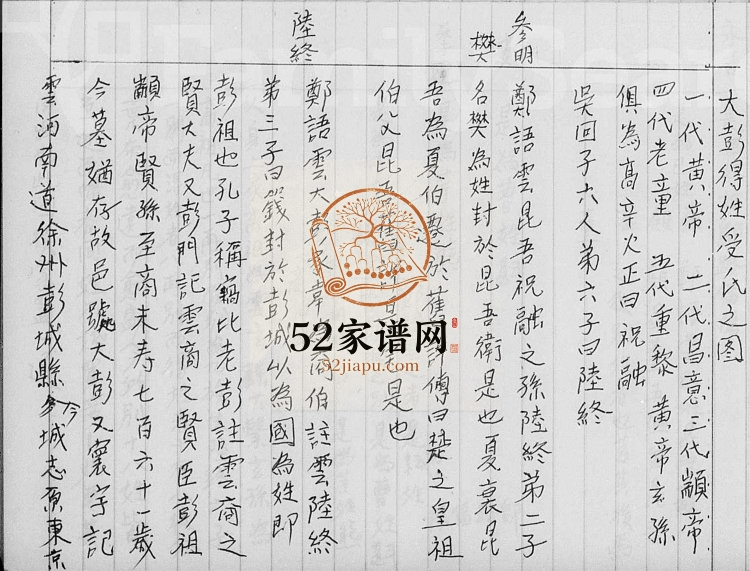 大彭得姓受氏之图
一代黄帝 二代昌意三代顓帝
四代老童 五代重黎黄帝玄孫
俱為高辛火正曰祝融
吴回子六人第六子曰陸終
参明
樊
鄭語雲昆吾祝融之孫陸終第二子
名樊為姓封於昆吾衛是也夏衰昆
吾為夏伯遷於舊許傳曰楚之皇祖
伯父昆吾 是也
陸終
鄭語雲大彭豕韋 商伯註雲陸終
第三子曰籛封於彭城以為國為姓即
彭祖也孔子稱竊比老彭註雲商之
賢大夫又彭門記雲商之賢臣彭祖
顓帝賢孫至商末寿七百六十一歳
今墓猶存故邑號大彭又寰宇記
雲河南道徐州彭城縣今 城志原東京
52家谱网
52jiapu.com